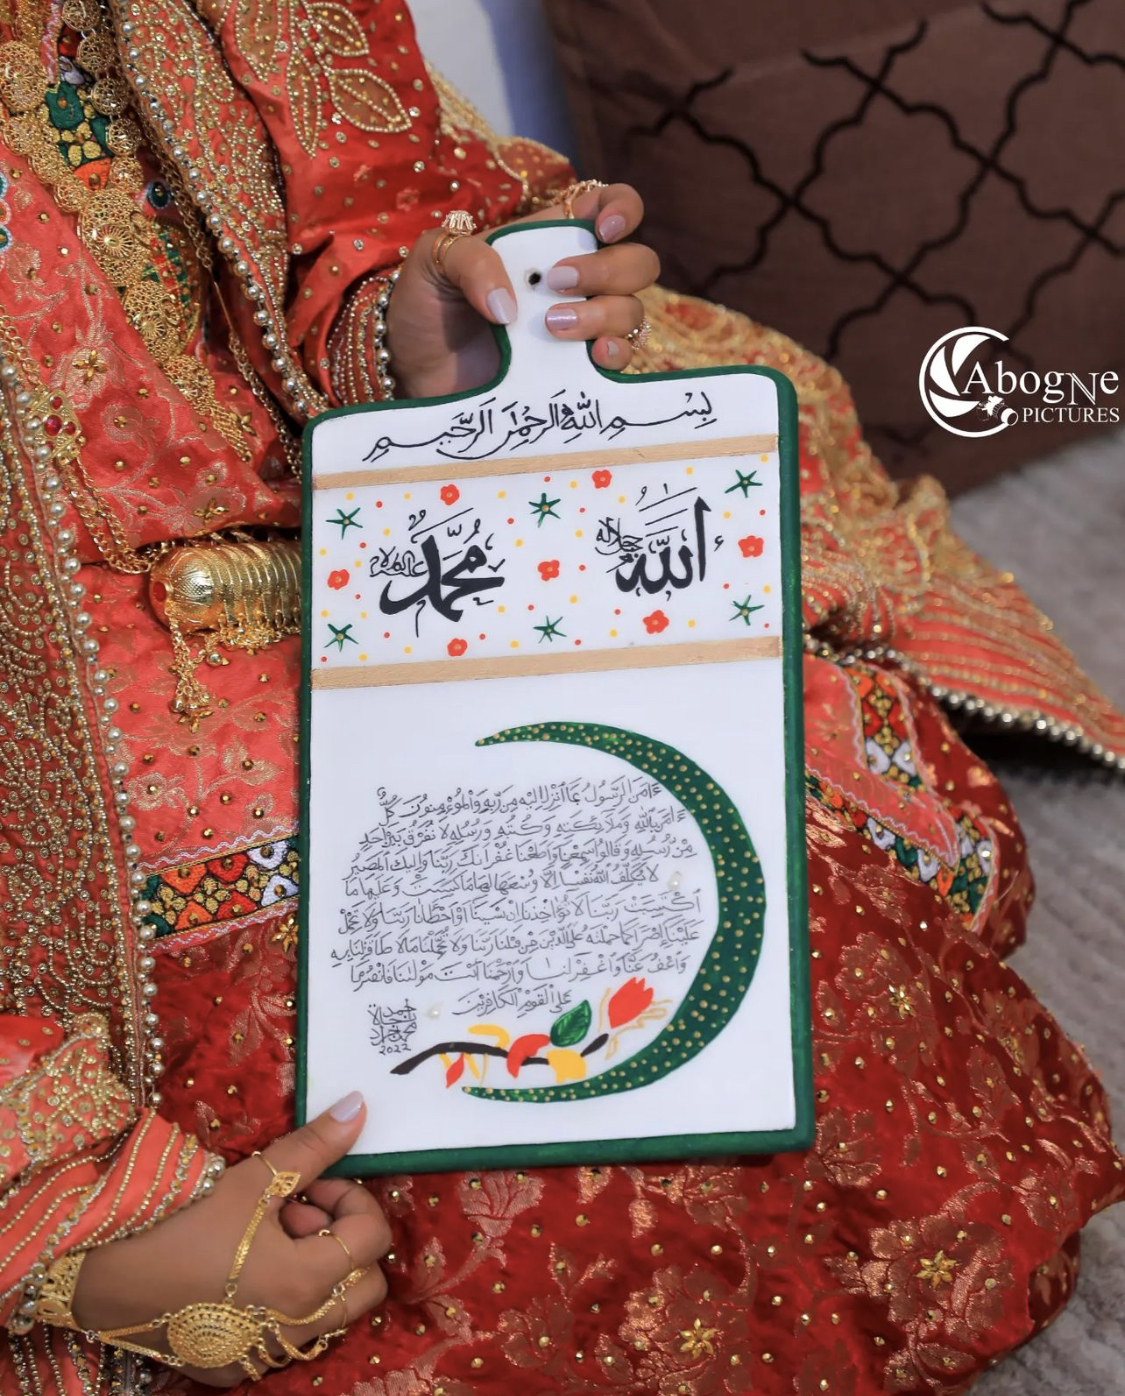 بِسْمِ اللَّهِ الرَّحْمَٰنِ الرَّحِيمِ
اللَّه جل جلاله
مُحَمَّد
ءَامَنَ الرَّسُولُ بِمَا أُنْزِلَ إِلَيْهِ مِنْ رَبِّهِ وَالْمُؤْمِنُونَ كُلٌّ
ءَامَنَ بِاللَّهِ وَمَلَائِكَتِهِ وَكُتُبِهِ وَرُسُلِهِ لَا نُفَرِّقُ بَيْنَ أَحَدٍ
مِنْ رُسُلِهِ وَقَالُوا سَمِعْنَا وَأَطَعْنَا غُفْرَانَكَ رَبَّنَا وَإِلَيْكَ الْمَصِيرُ
لَا يُكَلِّفُ اللَّهُ نَفْسًا إِلَّا وُسْعَهَا لَهَا مَا كَسَبَتْ وَعَلَيْهَا مَا
اكْتَسَبَتْ رَبَّنَا لَا تُؤَاخِذْنَا إِنْ نَسِينَا أَوْ أَخْطَأْنَا رَبَّنَا وَلَا تَحْمِلْ
عَلَيْنَا إِصْرًا كَمَا حَمَلْتَهُ عَلَى الَّذِينَ مِنْ قَبْلِنَا رَبَّنَا وَلَا تُحَمِّلْنَا مَا لَا طَاقَةَ لَنَا بِهِ
وَاعْفُ عَنَّا وَاغْفِرْ لَنَا وَارْحَمْنَا أَنْتَ مَوْلَانَا فَانْصُرْنَا
عَلَى الْقَوْمِ الْكَافِرِينَ
2022
Abogne
PICTURES